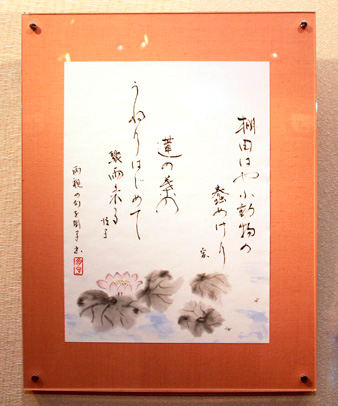 棚田はや小動物の
蠢めけり
蓮の葉の
うねりはじめて
驟雨来る
両親の句を